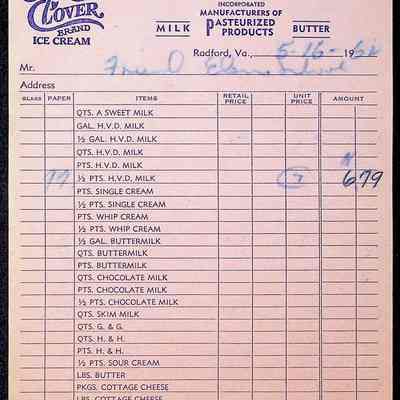 CLOVER
BRAND
ICE CREAM
INCORPORATED
MANUFACTURERS OF
MILK PASTEURIZED BUTTER
PRODUCTS
Radford, Va., 5-16-1962
Mr. Friend Elem School
Address
GLASS PAPER ITEMS RETAIL PRICE UNIT PRICE AMOUNT
QTS. A SWEET MILK
GAL. H.V.D. MILK
½ GAL. H.V.D. MILK
QTS. H.V.D. MILK
PTS. H.V.D. MILK
77 ½ PTS. H.V.D. MILK 7 679
PTS. SINGLE CREAM
½ PTS. SINGLE CREAM
PTS. WHIP CREAM
½ PTS. WHIP CREAM
½ GAL. BUTTERMILK
QTS. BUTTERMILK
PTS. BUTTERMILK
QTS. CHOCOLATE MILK
PTS. CHOCOLATE MILK
½ PTS. CHOCOLATE MILK
QTS. SKIM MILK
QTS. G. & G.
QTS. H. & H.
PTS. H. & H.
½ PTS. SOUR CREAM
LBS. BUTTER
PKGS. COTTAGE CHEESE
LBS. COTTAGE CHEESE